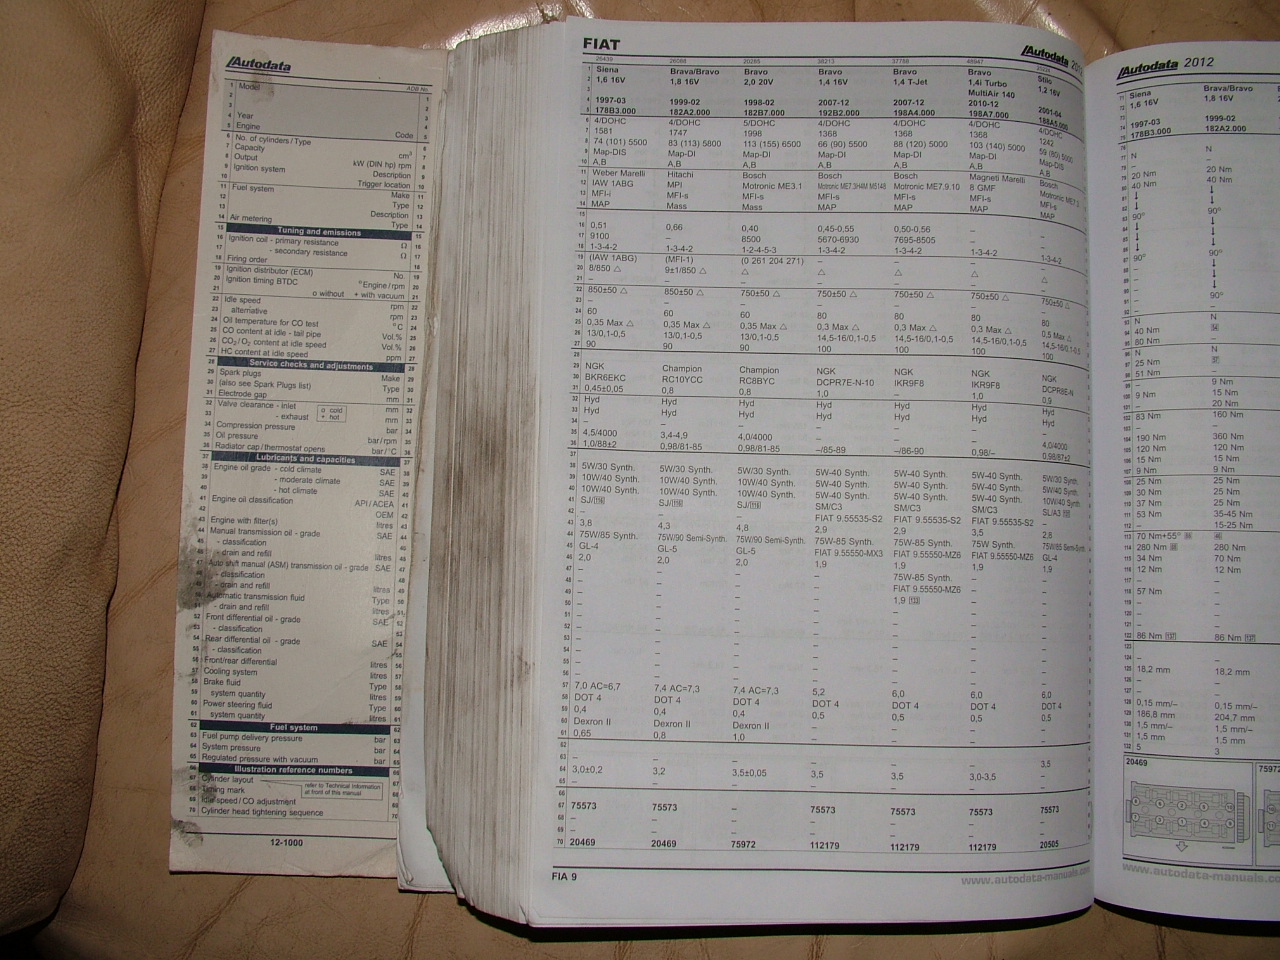 Autodata
1 Model ADB No. 1
2 2
3 3
4 Year 4
5 Engine Code 5
6 No. of cylinders/Type 6
7 Capacity cm³ 7
8 Output kW (DIN hp) rpm 8
9 Ignition system Description 9
10 Trigger location 10
11 Fuel system Make 11
12 Type 12
13 Description 13
14 Air metering Type 14
15 Tuning and emissions 15
16 Ignition coil - primary resistance Ω 16
17 - secondary resistance Ω 17
18 Firing order 18
19 Ignition distributor (ECM) No. 19
20 Ignition timing BTDC °Engine/rpm 20
21 o without + with vacuum 21
22 Idle speed rpm 22
23 alternative rpm 23
24 Oil temperature for CO test °C 24
25 CO content at idle - tail pipe Vol.% 25
26 CO2/O2 content at idle speed Vol.% 26
27 HC content at idle speed ppm 27
28 Service checks and adjustments 28
29 Spark plugs Make 29
30 (also see Spark Plugs list) Type 30
31 Electrode gap mm 31
32 Valve clearance - inlet o cold mm 32
33 - exhaust + hot mm 33
34 Compression pressure bar 34
35 Oil pressure bar/rpm 35
36 Radiator cap/thermostat opens bar/°C 36
37 Lubricants and capacities 37
38 Engine oil grade - cold climate SAE 38
39 - moderate climate SAE 39
40 - hot climate SAE 40
41 Engine oil classification API/ACEA 41
42 OEM 42
43 Engine with filter(s) litres 43
44 Manual transmission oil - grade SAE 44
45 - classification 45
46 - drain and refill litres 46
47 Auto shift manual (ASM) transmission oil - grade SAE 47
- classification 48
- drain and refill litres 49
Automatic transmission fluid Type 50
- drain and refill litres 51
52 Front differential oil - grade SAE 52
53 - classification 53
54 Rear differential oil - grade SAE 54
55 - classification 55
56 Front/rear differential litres 56
57 Cooling system litres 57
58 Brake fluid Type 58
59 system quantity litres 59
60 Power steering fluid Type 60
61 system quantity litres 61
62 Fuel system 62
63 Fuel pump delivery pressure bar 63
64 System pressure bar 64
65 Regulated pressure with vacuum bar 65
66 Illustration reference numbers
67 Cylinder layout refer to Technical Information
68 Timing mark at front of this manual
Idle speed/CO adjustment
70 Cylinder head tightening sequence 70
12-1000
FIAT Autodata 2012
26439 26088 20285 38213 37788 48947
1 Siena Brava/Bravo Bravo Bravo Bravo Bravo Stilo
2 1,6 16V 1,8 16V 2,0 20V 1,4 16V 1,4 T-Jet 1,4i Turbo 1,2 16V
3 MultiAir 140
4 1997-03 1999-02 1998-02 2007-12 2007-12 2010-12 2001-04
5 178B3.000 182A2.000 182B7.000 192B2.000 198A4.000 198A7.000 188A5.000
6 4/DOHC 4/DOHC 5/DOHC 4/DOHC 4/DOHC 4/DOHC 4/DOHC
7 1581 1747 1998 1368 1368 1368 1242
8 74 (101) 5500 83 (113) 5800 113 (155) 6500 66 (90) 5500 88 (120) 5000 103 (140) 5000 59 (80) 5000
9 Map-DIS Map-DI Map-DI Map-DI Map-DI Map-DI Map-DIS
10 A,B A,B A,B A,B A,B A,B A,B
11 Weber Marelli Hitachi Bosch Bosch Bosch Magneti Marelli Bosch
12 IAW 1ABG MPI Motronic ME3.1 Motronic ME7.3H4M MS148 Motronic ME7.9.10 8 GMF Motronic ME7.3
13 MFI-i MFI-s MFI-s MFI-s MFI-s MFI-s MFI-s
14 MAP Mass Mass MAP MAP MAP MAP
15
16 0,51 0,66 0,40 0,45-0,55 0,50-0,56 –
17 9100 8500 5670-6930 7695-8505 –
18 1-3-4-2 1-3-4-2 1-2-4-5-3 1-3-4-2 1-3-4-2 1-3-4-2 1-3-4-2
19 (IAW 1ABG) (MFI-1) (0 261 204 271) – – – –
20 8/850 △ 9±1/850 △ △ △ △ △ △
21 – – – – – – –
22 850±50 △ 850±50 △ 750±50 △ 750±50 △ 750±50 △ 750±50 △ 750±50 △
23 – – – – – – –
24 60 60 60 80 80 80 80
25 0,35 Max △ 0,35 Max △ 0,35 Max △ 0,3 Max △ 0,3 Max △ 0,3 Max △ 0,5 Max △
26 13/0,1-0,5 13/0,1-0,5 13/0,1-0,5 14,5-16/0,1-0,5 14,5-16/0,1-0,5 14,5-16/0,1-0,5 14,5-16/0,1-0,5
27 90 90 90 100 100 100 100
28
29 NGK Champion Champion NGK NGK NGK NGK
30 BKR6EKC RC10YCC RC8BYC DCPR7E-N-10 IKR9F8 IKR9F8 DCPR8E-N
31 0,45±0,05 0,8 0,8 1,0 – 1,0 0,9
32 Hyd Hyd Hyd Hyd Hyd Hyd Hyd
33 Hyd Hyd Hyd Hyd Hyd Hyd Hyd
34 – – – – – – –
35 4,5/4000 3,4-4,9 4,0/4000 – – – 4,0/4000
36 1,0/88±2 0,98/81-85 0,98/81-85 –/85-89 –/86-90 0,98/– 0,98/87±2
37
38 5W/30 Synth. 5W/30 Synth. 5W/30 Synth. 5W-40 Synth. 5W-40 Synth. 5W-40 Synth. 5W/30 Synth.
39 10W/40 Synth. 10W/40 Synth. 10W/40 Synth. 5W-40 Synth. 5W-40 Synth. 5W-40 Synth. 10W/40 Synth.
40 10W/40 Synth. 10W/40 Synth. 10W/40 Synth. 5W-40 Synth. 5W-40 Synth. 5W-40 Synth. 10W/40 Synth.
41 SJ/ SJ/ SJ/ SM/C3 SM/C3 SM/C3 SL/A3
42 – – – FIAT 9.55535-S2 FIAT 9.55535-S2 FIAT 9.55535-S2 –
43 3,8 4,3 4,8 2,9 2,9 3,5 2,8
44 75W/85 Synth. 75W/90 Semi-Synth. 75W/90 Semi-Synth. 75W-85 Synth. 75W-85 Synth. 75W Synth. 75W/85 Semi-Synth.
45 GL-4 GL-5 GL-5 FIAT 9.55550-MX3 FIAT 9.55550-MZ6 FIAT 9.55550-MZ6 GL-4
46 2,0 2,0 2,0 1,9 1,9 1,9 1,9
47 – – – – 75W-85 Synth. – –
48 – – – – FIAT 9.55550-MZ6 – –
49 – – – – 1,9 – –
50 – – – – – – –
51 – – – – – – –
52 – – – – – – –
53 – – – – – – –
54 – – – – – – –
55 – – – – – – –
56 – – – – – – –
57 7,0 AC=6,7 7,4 AC=7,3 7,4 AC=7,3 5,2 6,0 6,0 6,0
58 DOT 4 DOT 4 DOT 4 DOT 4 DOT 4 DOT 4 DOT 4
59 0,4 0,4 0,4 0,5 0,5 0,5 0,5
60 Dexron II Dexron II Dexron II – – – –
61 0,65 0,8 1,0 – – – –
62
63 – – – – – – 3,5
64 3,0±0,2 3,2 3,5±0,05 3,5 3,5 3,0-3,5 –
65 – – – – – – –
66
67 75573 75573 – 75573 75573 75573 75573
68 – – – – – – –
69 – – – – – – –
70 20469 20469 75972 112179 112179 112179 20505
FIA 9 www.autodata-manuals.co
Autodata 2012
Siena Brava/Bravo
1,6 16V 1,8 16V
1997-03 1999-02
178B3.000 182A2.000
N N
20 Nm 20 Nm
40 Nm 40 Nm
↓ ↓
90° 90°
↓ ↓
90° ↓
– 90°
N
40 Nm
80 Nm –
N N
25 Nm
51 Nm –
– 9 Nm
9 Nm 15 Nm
– 20 Nm
83 Nm 160 Nm
190 Nm 360 Nm
120 Nm 120 Nm
15 Nm 15 Nm
9 Nm 9 Nm
25 Nm 25 Nm
30 Nm 25 Nm
37 Nm 25 Nm
53 Nm 35-45 Nm
– 15-25 Nm
70 Nm+55°
280 Nm 280 Nm
34 Nm 70 Nm
12 Nm 12 Nm
57 Nm –
86 Nm 86 Nm
18,2 mm 18,2 mm
0,15 mm/– 0,15 mm/–
186,8 mm 204,7 mm
1,5 mm/– 1,5 mm/–
1,5 mm 1,5 mm
5 3
20469 75972
www.autodata-manuals.co